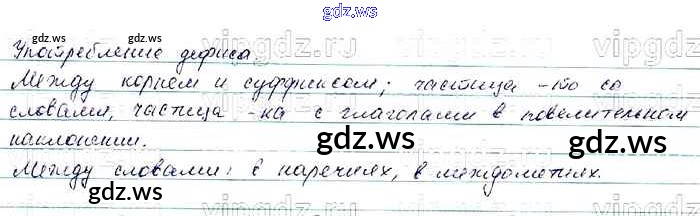 gdz.ws
Употребление дефиса.
Между корнем и суффиксом; частица -то со
словами, частица -ка с глаголами в повелительном
наклонении.
Между словами: в наречиях, в междометиях.
gdz.ws
gdz.ws
gdz.ws
vipgdz.ru
vipgdz.ru